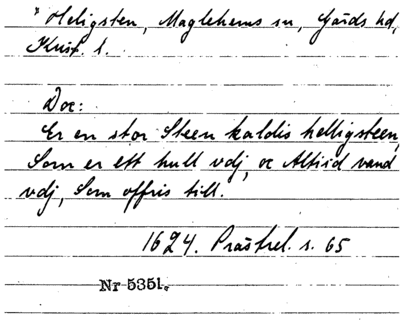 * Heligsten, Maglehems sn, Gärds hd,
Krist. l.
Doc:
Er en stor Steen kaldis helligsteen,
Som er ett hull vdj, oc Altiid vand
vdj, Som offris till.
1624. Prästrel. s. 65
Nr 5351.